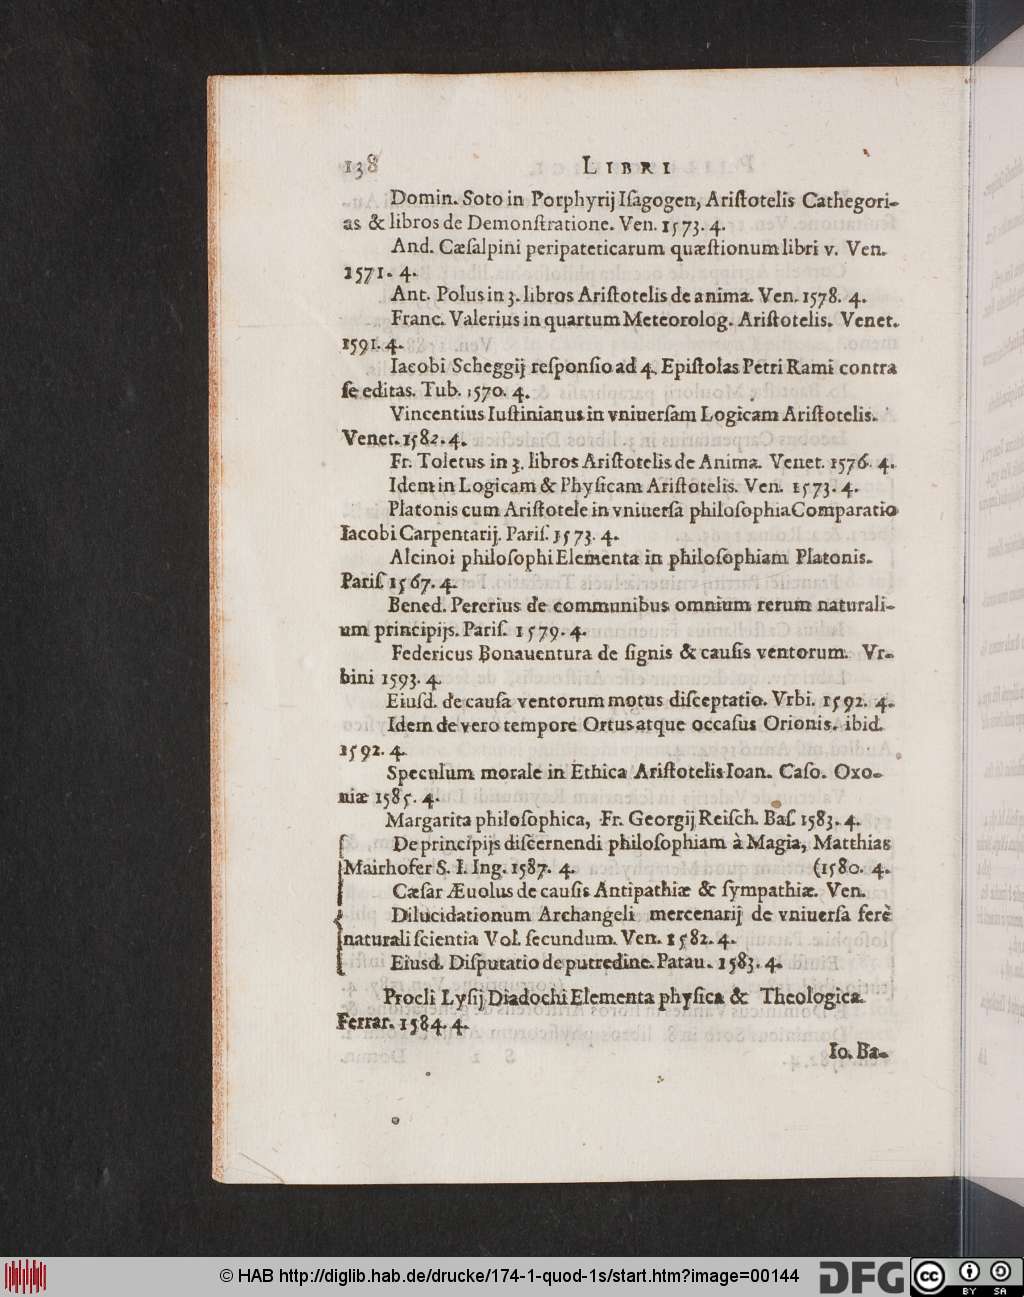 138 LIBRI
Domin. Soto in Porphyrij Iſagogen, Ariſtotelis Cathegori-
as & libros de Demonſtratione. Ven. 1573. 4.
And. Cæſalpini peripateticarum quæſtionum libri v. Ven.
1571. 4.
Ant. Polus in 3. libros Ariſtotelis de anima. Ven. 1578. 4.
Franc. Valerius in quartum Meteorolog. Ariſtotelis. Venet.
1591. 4.
Iacobi Scheggij reſponſio ad 4. Epiſtolas Petri Rami contra
ſe editas. Tub. 1570. 4.
Vincentius Iuſtinianus in vniuerſam Logicam Ariſtotelis.
Venet. 1582. 4.
Fr. Toletus in 3. libros Ariſtotelis de Anima. Venet. 1576. 4.
Idem in Logicam & Phyſicam Ariſtotelis. Ven. 1573. 4.
Platonis cum Ariſtotele in vniuerſâ philoſophia Comparatio
Iacobi Carpentarij. Pariſ. 1573. 4.
Alcinoi philoſophi Elementa in philoſophiam Platonis.
Pariſ 1567. 4.
Bened. Pererius de communibus omnium rerum naturali-
um principijs. Pariſ. 1579. 4.
Federicus Bonauentura de ſignis & cauſis ventorum. Vr-
bini 1593. 4.
Eiuſd. de cauſa ventorum motus diſceptatio. Vrbi. 1592. 4.
Idem de vero tempore Ortus atque occaſus Orionis. ibid.
1592. 4.
Speculum morale in Ethica Ariſtotelis Ioan. Caſo. Oxo-
niæ 1585. 4.
Margarita philoſophica, Fr. Georgij Reiſch. Baſ. 1583. 4.
De principijs diſcernendi philoſophiam à Magia, Matthias
Mairhofer S. I. Ing. 1587. 4. (1580. 4.
Cæſar Æuolus de cauſis Antipathiæ & ſympathiæ. Ven.
Dilucidationum Archangeli mercenarij de vniuerſa ferè
naturali ſcientia Vol. ſecundum. Ven. 1582. 4.
Eiusd. Diſputatio de putredine. Patau. 1583. 4.
Procli Lyſij Diadochi Elementa phyſica & Theologica.
Ferrar. 1584. 4.
Io. Ba-
© HAB http://diglib.hab.de/drucke/174-1-quod-1s/start.htm?image=00144
DFG
cc
BY SA